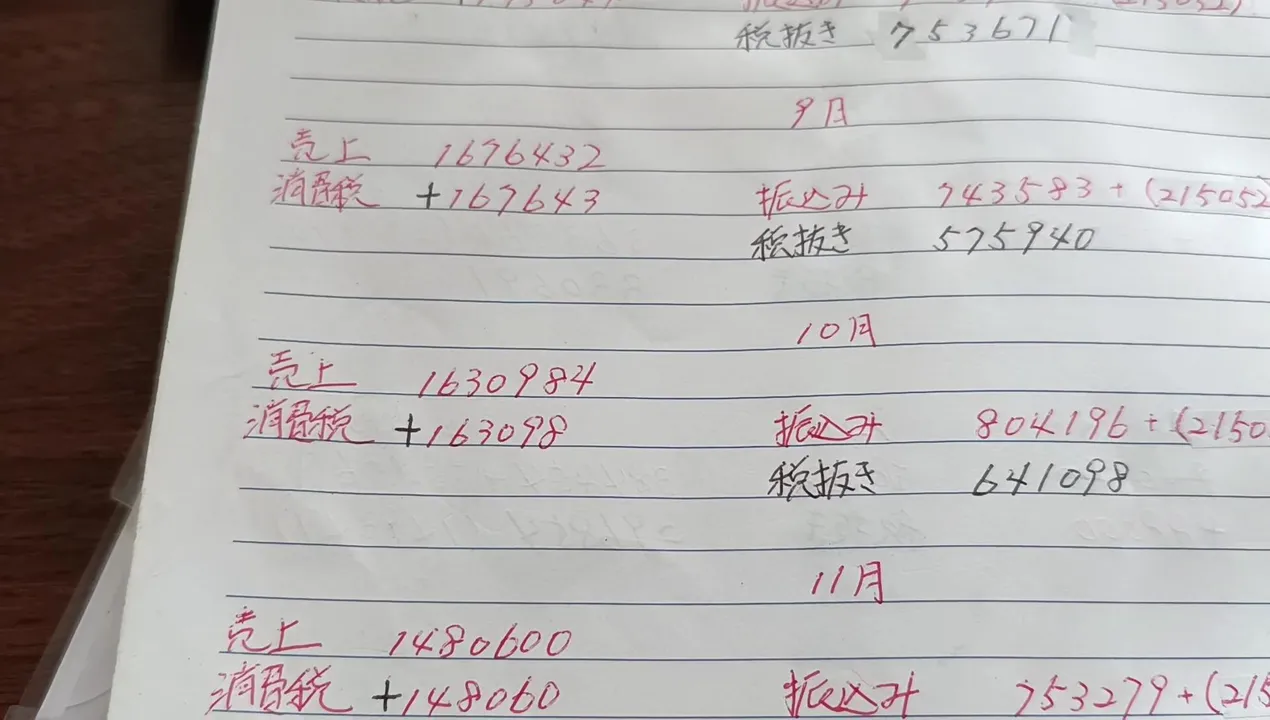 税抜き 753671
9月
売上 1676432
消費税 +167643 振込計 743583+(215052
税抜き 575940
10月
売上 1630984
消費税 +163098 振込計 804196+(2150
税抜き 641098
11月
売上 1480600
消費税 +148060 振込計 753279+(215